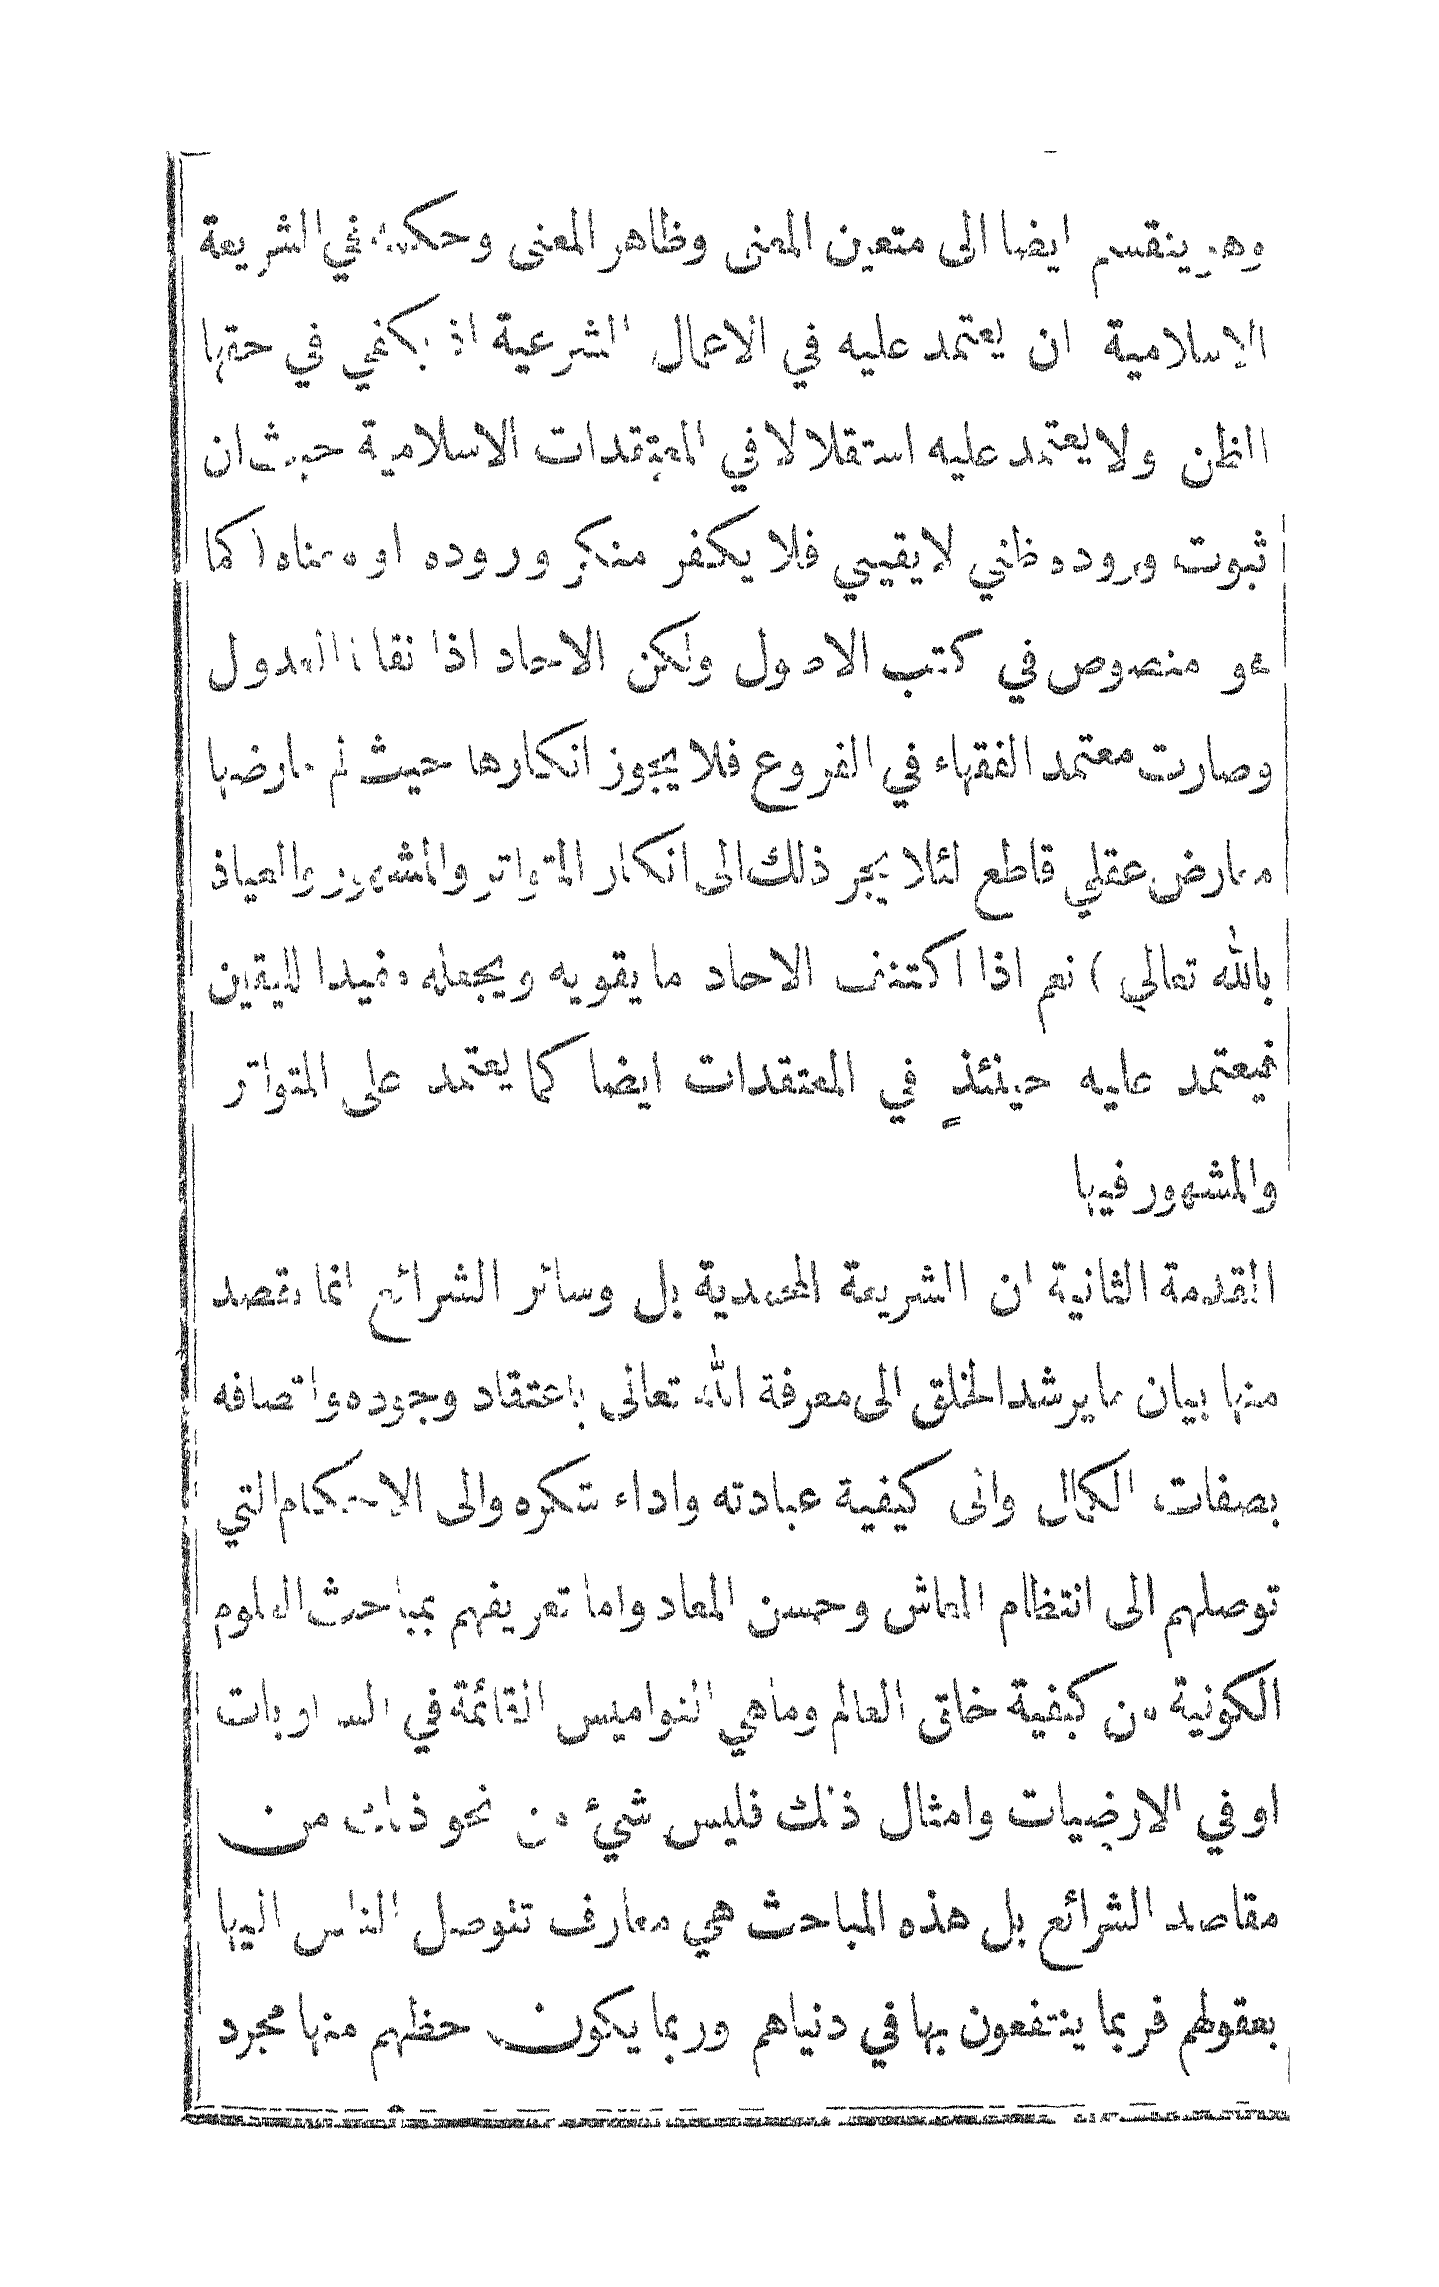 وهو ينقسم ايضا الى متعين المعنى وظاهر المعنى وحكمه في الشريعة
الاسلامية ان يعتمد عليه في الاعمال الشرعية اذ يكفي في حقها
الظن ولا يعتمد عليه استقلالا في المعتقدات الاسلامية حيث ان
ثبوت وروده ظني لا يقيني فلا يكفر منكر وروده او معناه ( كما
هو منصوص في كتب الاصول ولكن الاحاد اذا نقلها العدول
وصارت معتمد الفقهاء في الفروع فلا يجوز انكارها حيث لم يعارضها
معارض عقلي قاطع لئلا يجر ذلك الى انكار المتواتر والمشهور والعياذ
بالله تعالي ) نعم اذا اكتنف الاحاد ما يقويه ويجعله مفيدا لليقين
فيعتمد عليه حينئذٍ في المعتقدات ايضا كما يعتمد على المتواتر
والمشهور فيها
المقدمة الثانية ان الشريعة المحمدية بل وسائر الشرائع انما يقصد
منها بيان ما يرشد الخلق الى معرفة الله تعالى باعتقاد وجوده واتصافه
بصفات الكمال والى كيفية عبادته واداء شكره والى الاحكام التي
توصلهم الى انتظام المعاش وحسن المعاد واما تعريفهم بمباحث العلوم
الكونية من كيفية خلق العالم وما هي النواميس القائمة في السماويات
او في الارضيات وامثال ذلك فليس شيء من نحو ذلك من
مقاصد الشرائع بل هذه المباحث هي معارف تتوصل الناس اليها
بعقولهم فربما ينتفعون بها في دنياهم وربما يكون حظهم منها مجرد